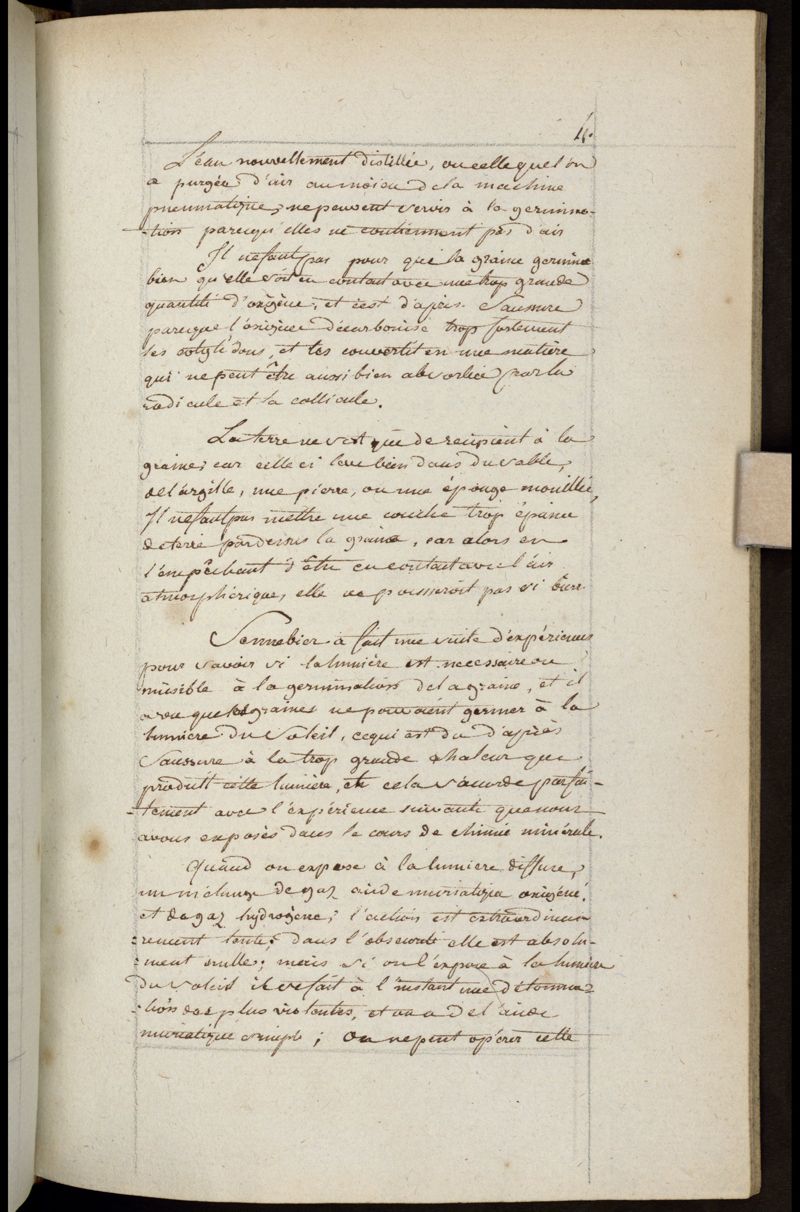 4.
L'eau nouvellement distillée, ou celle que l'on
a purgée d'air au moien de la machine
pneumatique, ne peuvent servir à la germina-
-tion parcequ'elles ne contiennent pas d'air
Il ne faut pas pour que la graine germine
bien qu'elle soit en contact avec une trop grande
quantité d'oxigène, et c'est d'après Saussure
parceque l'oxigène décarbonise trop fortement
les cotylédons, et les convertit en une matière
qui ne peut être aussi bien absorbée par la
radicule et la
La terre ne sert que de recipient à la
graine, car celle ci leve bien dans du sable,
de l'argille, une pierre, ou une éponge mouillée,
Il ne faut pas mettre une couche trop épaisse
de terre par dessus la graine, car alors en
l'empêchant d'être en contact avec l'air
atmosphérique, elle ne pousseroit pas si bien.
Sennebier a fait une suite d'expériences
pour savoir si la lumière est necessaire ou
nuisible à la germination de la graine, et il
a vu que les graines ne pouvoient germer à la
lumière du soleil, ce qui est du d'après
Saussure à la trop grande chaleur que
produit cette lumière, et cela s'accorde parfai-
-tement avec l'expérience suivante que nous
avons exposés dans le cours de chimie minérale.
Quand on expose à la lumière diffuse,
un mélange de gaz acide muriatique oxigéné,
et de gaz hydrogène, l'action est extraordinai-
-rement lente; dans l'obscurité elle est absolu-
-ment nulle; mais si on l'expose à la lumière
du soleil il se fait à l'instant une détonna-
-tion des plus violentes, et on a de l'acide
muriatique simple; on ne peut opérer cette